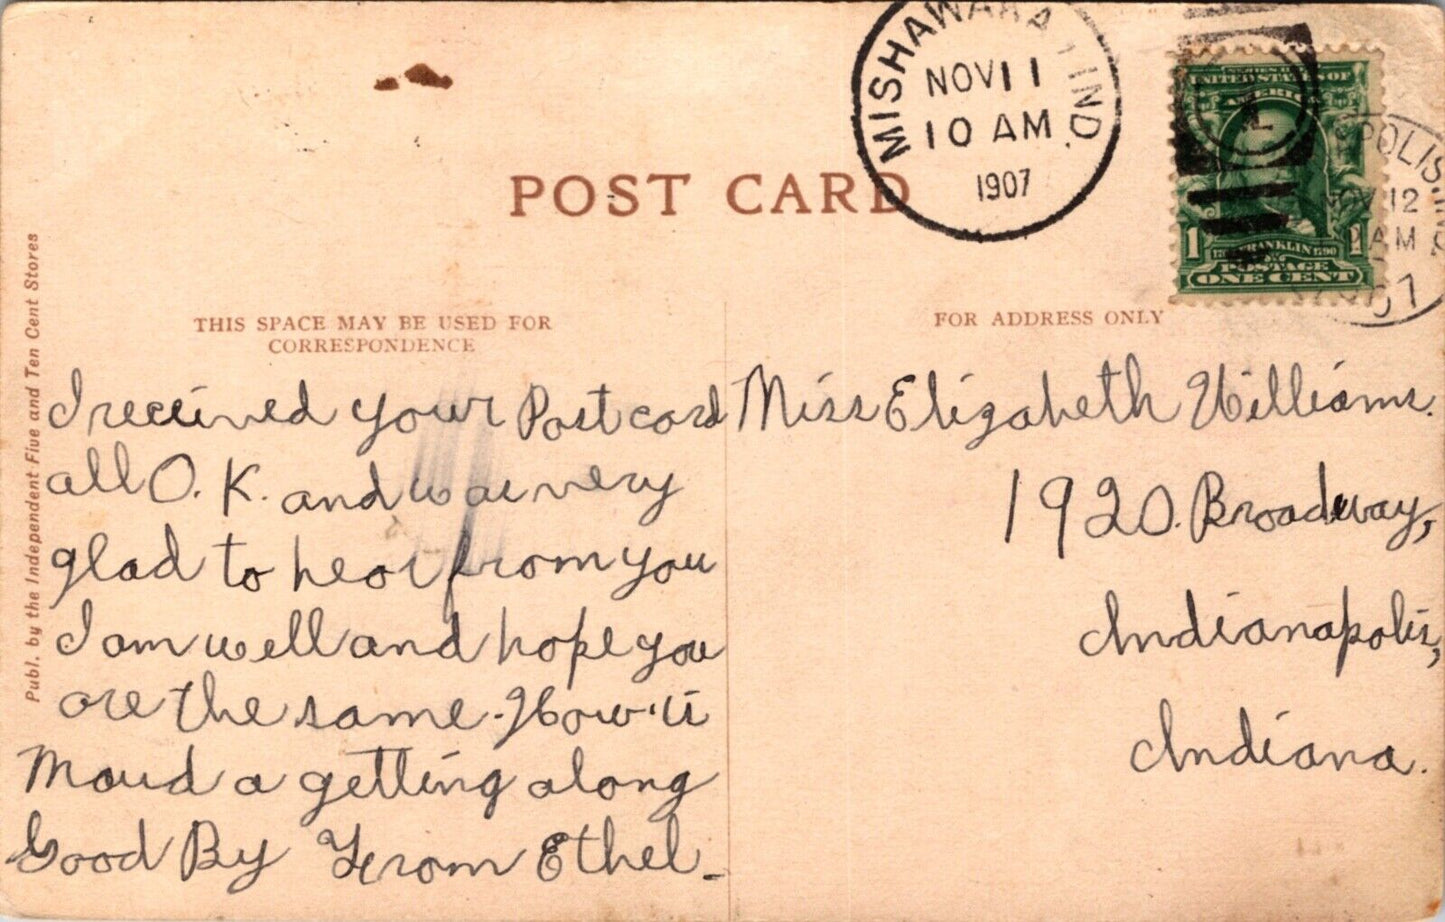 MISHAWAKA, IND.
NOV 11
10 AM
1907
SERIES
UNITED STATES OF
AMERICA
FRANKLIN
POSTAGE
1 1
ONE CENT
1
POLIS, IND
OV 12
AM
07
POST CARD
Publ. by the Independent Five and Ten Cent Stores
THIS SPACE MAY BE USED FOR
CORRESPONDENCE
I received your Post card
all O. K. and was very
glad to hear from you
I am well and hope you
are the same. How is
Maud a getting along
Good By From Ethel.
FOR ADDRESS ONLY
Miss Elizabeth Williams.
1920. Broadway,
Indianapolis,
Indiana.